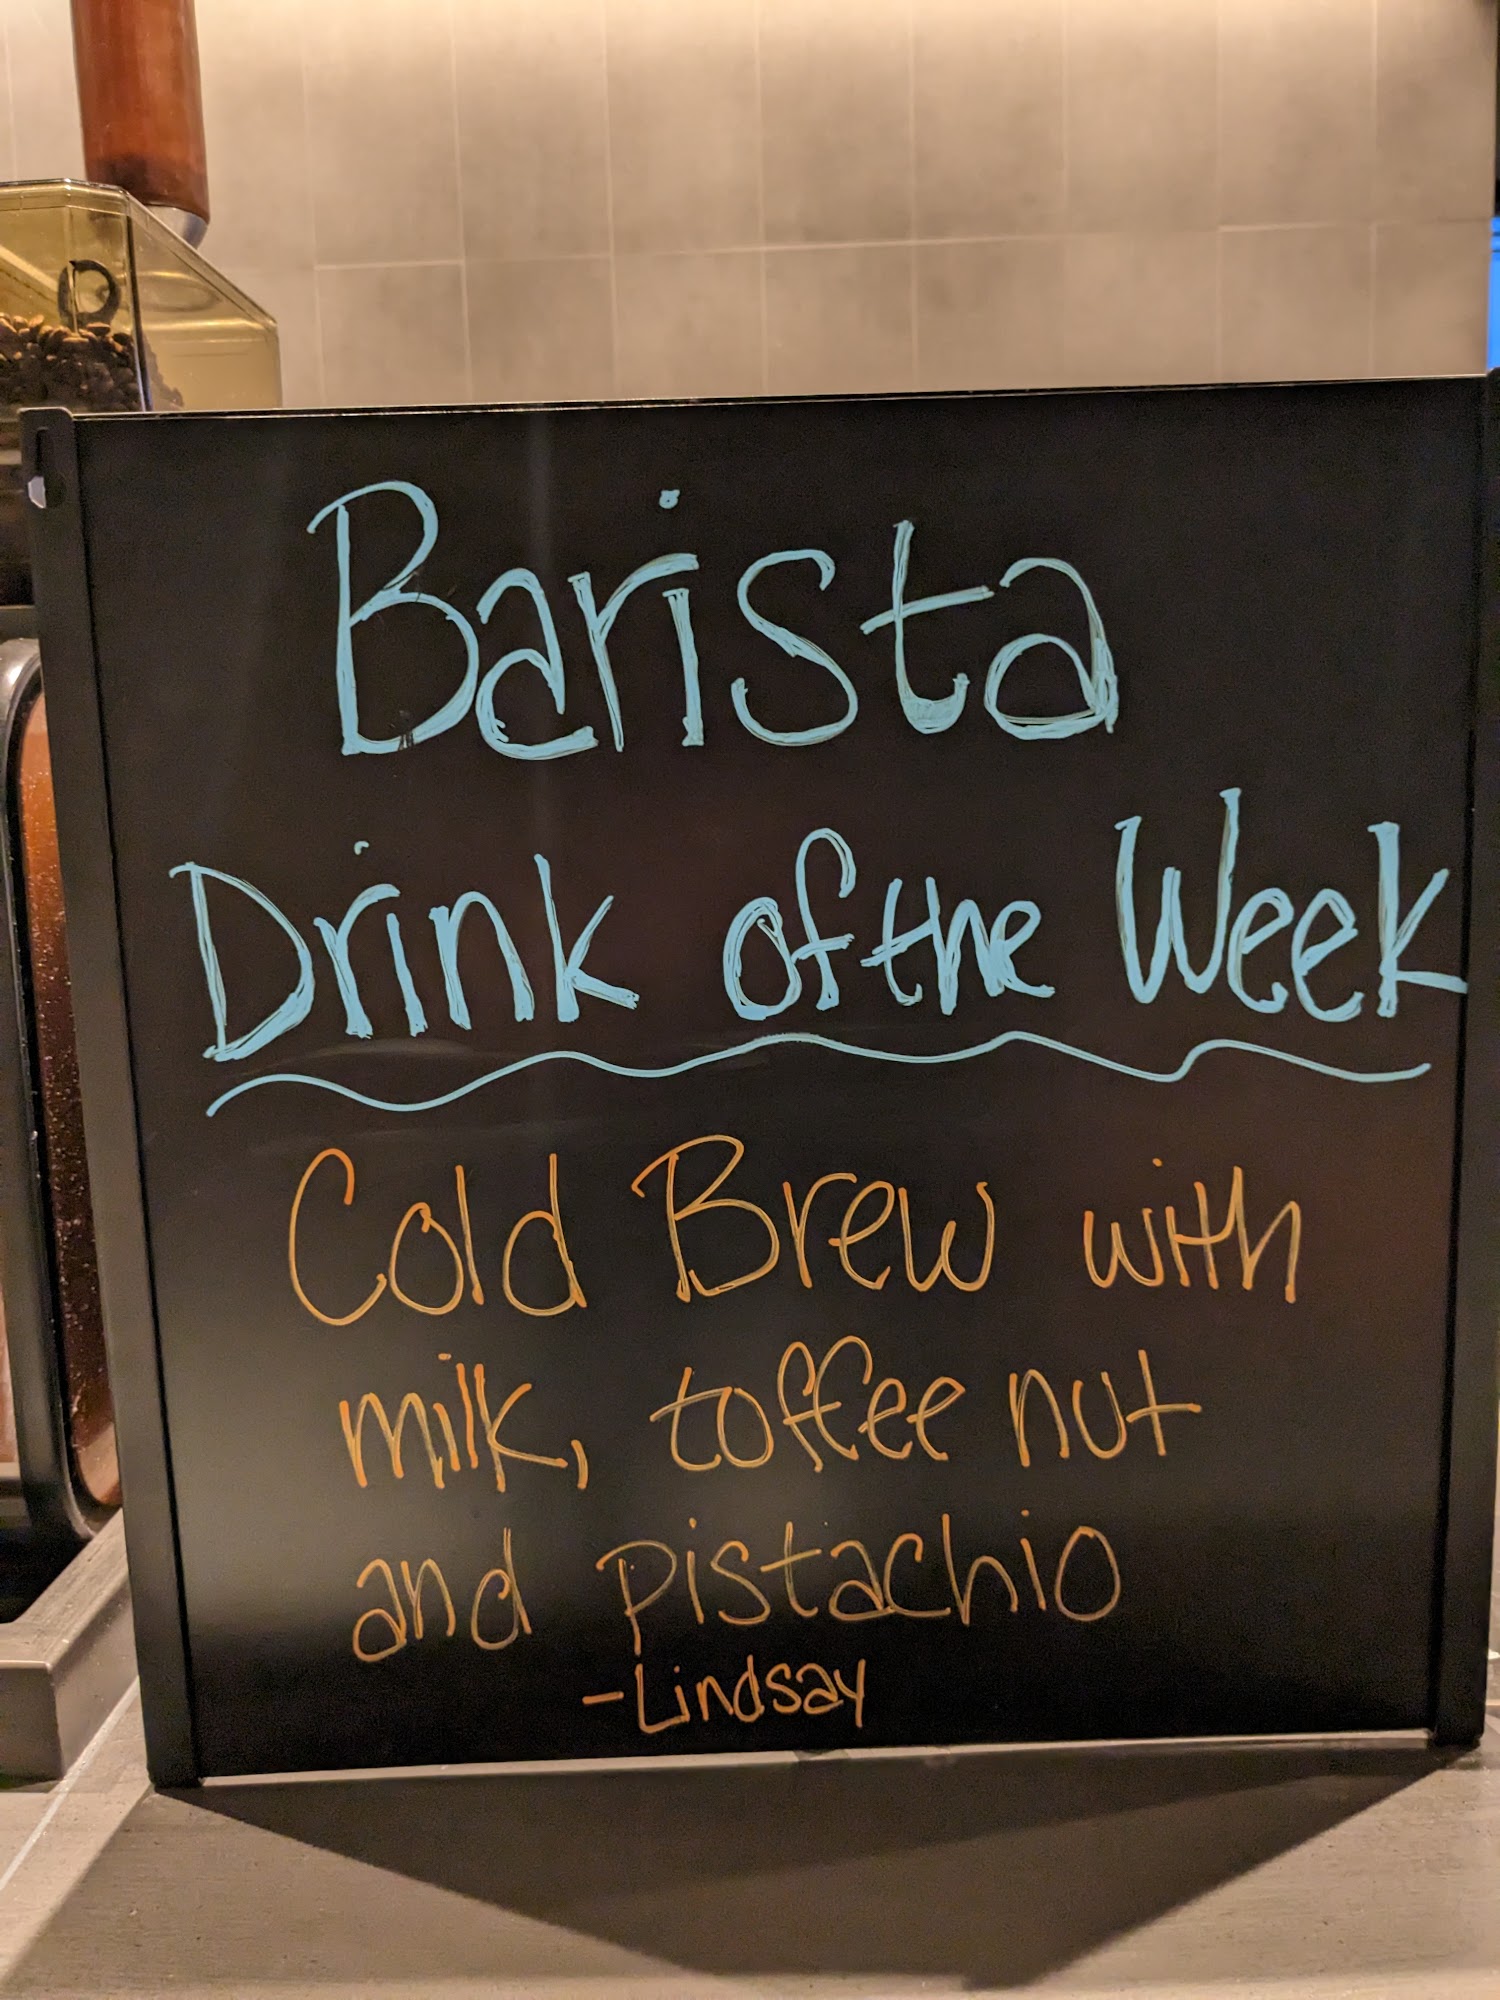 Barista
Drink of the Week
Cold Brew with
milk, toffee nut
and pistachio
-Lindsay